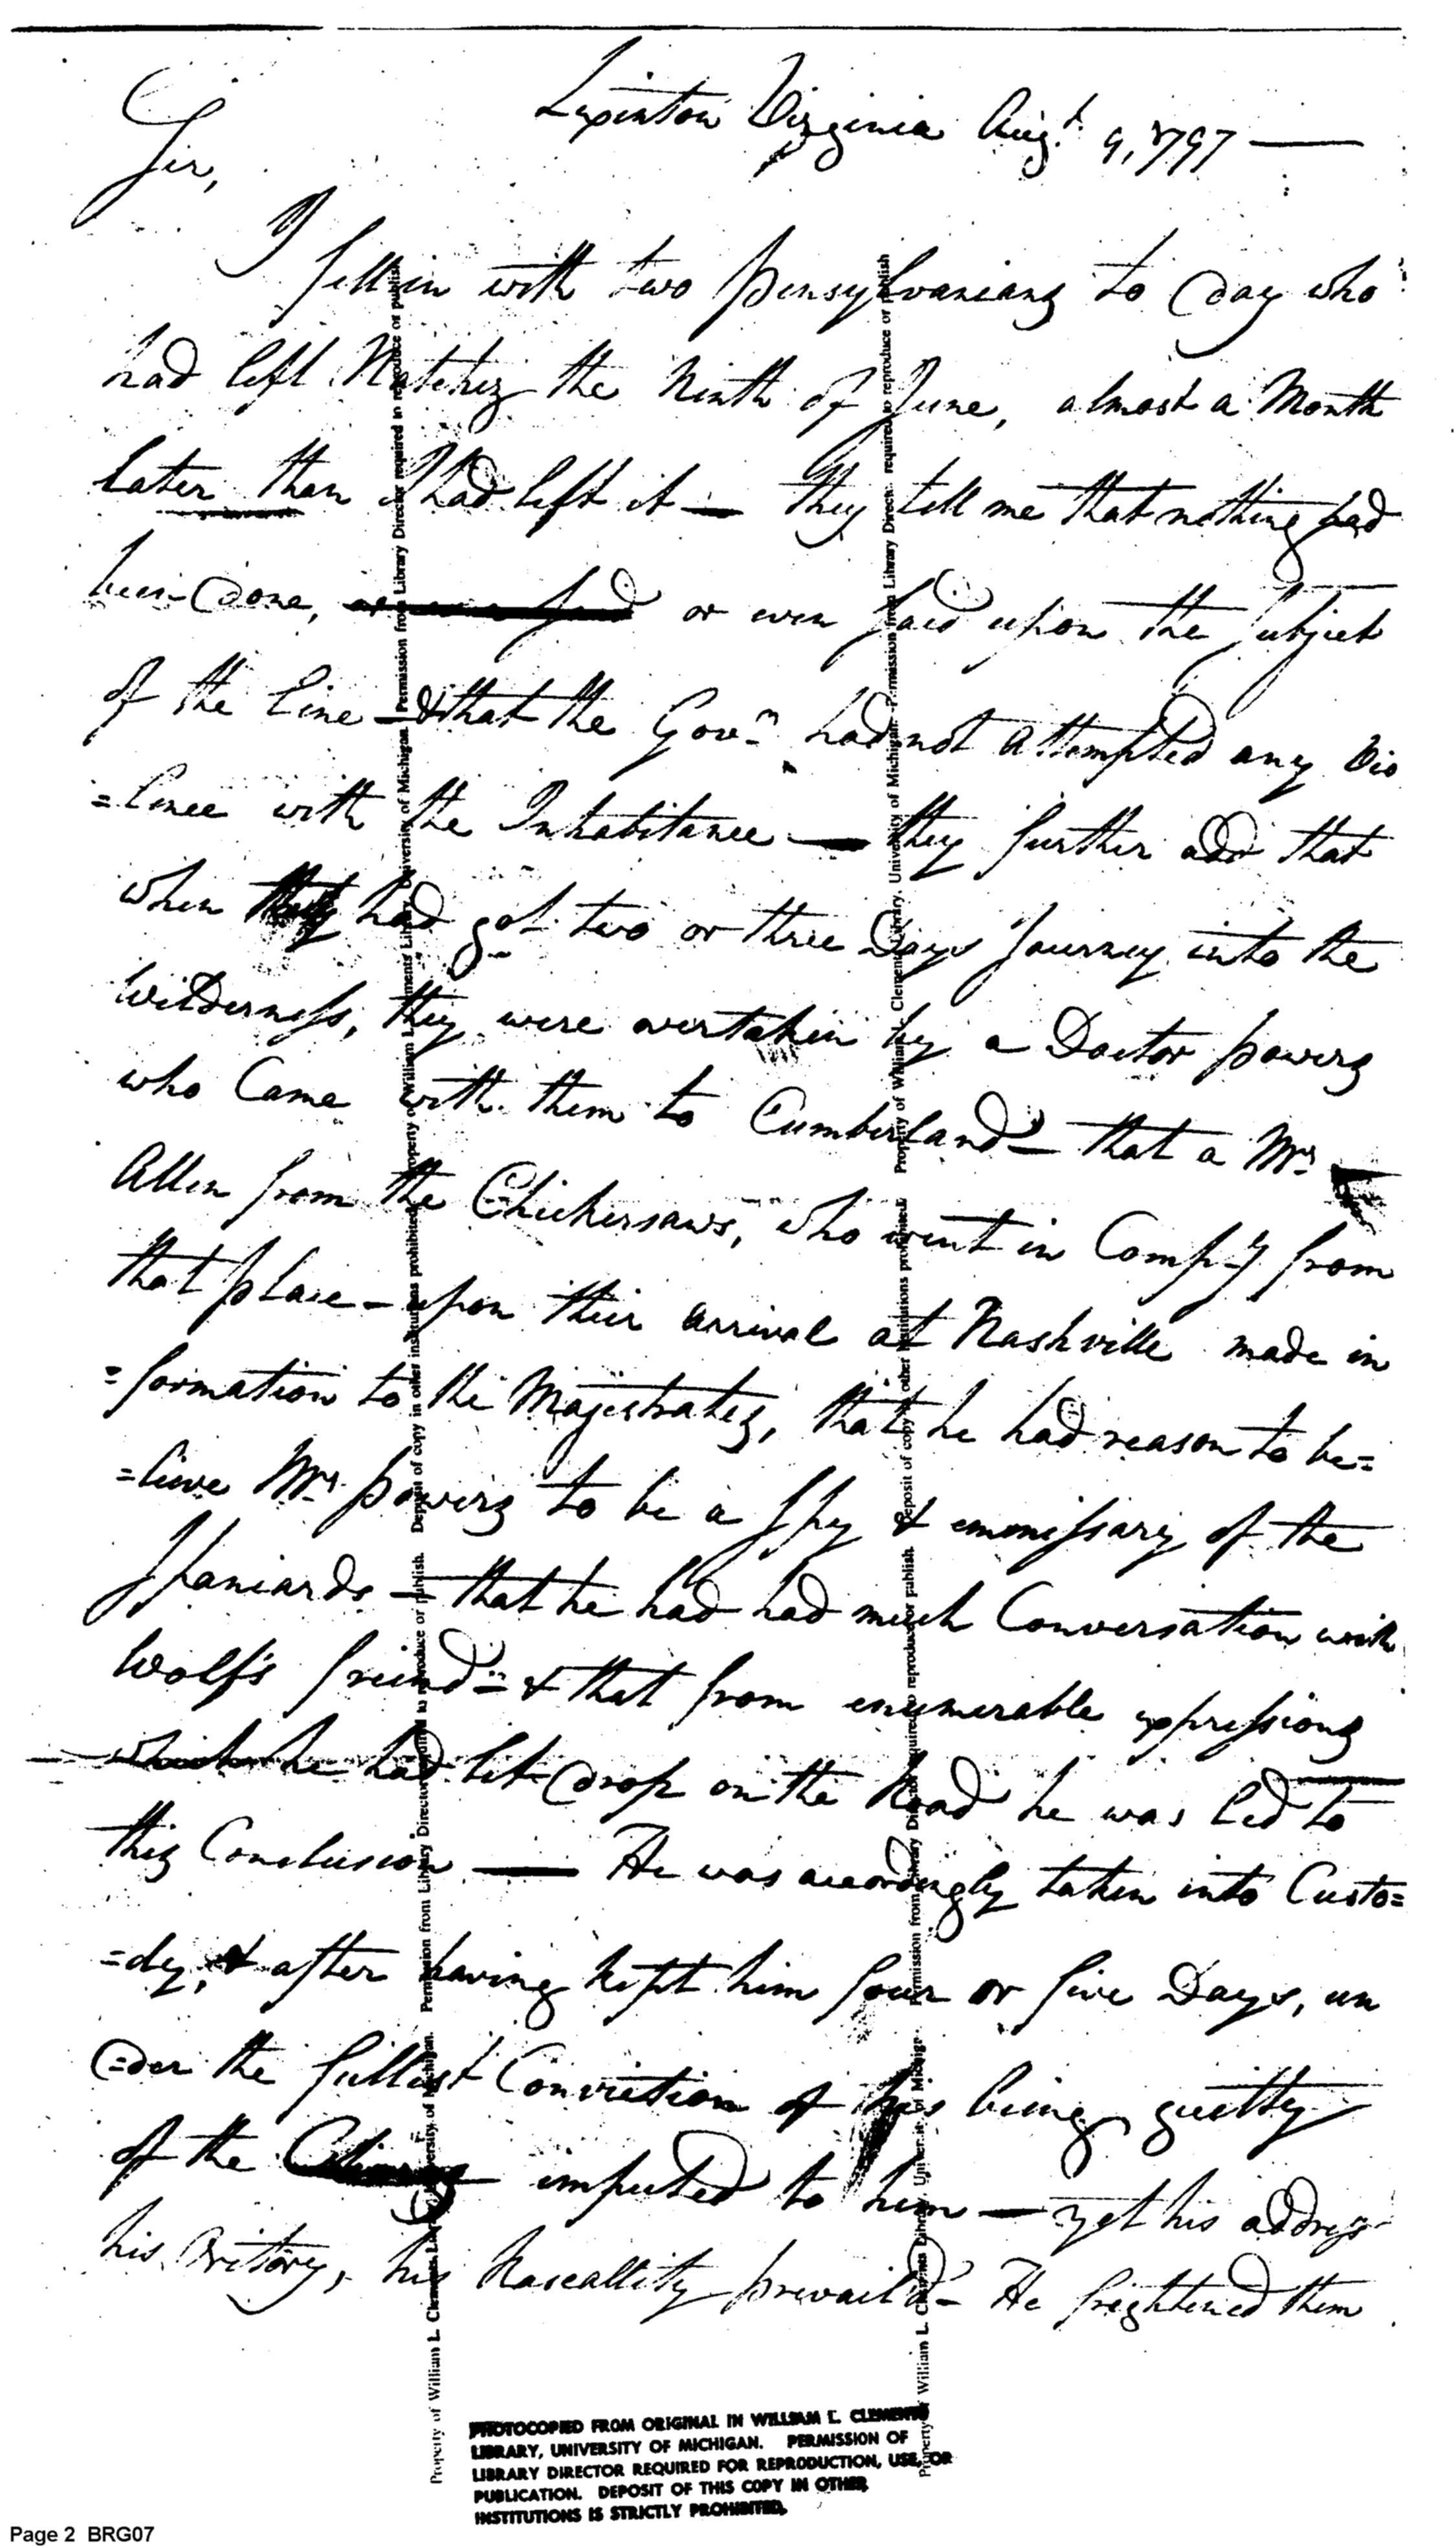 Lexinton Virginia Augt. 9, 1797 —
Sir,
I fell in with two pensylvanians to day who
had left Natchez the Ninth of June, almost a Month
later than I had left it — they tell me that nothing had
been done, or even said upon the Subject
of the Line — & that the Govr. had not attempted any vio
=lence with the Inhabitance — they further add that
when they had got two or three Days Journey into the
Wilderness, they were overtaken by a Doctor powers
who Came with them to Cumberland — that a Mr.
Allen from the Chickersaws, who went in Compy from
that place — upon their arrival at Nashville made in
=formation to the Majestrates, that he had reason to be=
=lieve Mr. powers to be a Spy & emmissary of the
Spaniards — that he had had much Conversation with
Wolf's freind — & that from enumerable expressions
which he had let drop on the Road he was led to
this Conclusion — He was accordingly taken into Custo=
=dy, & after having kept him four or five Days, un
=der the fullest Conviction of his being guilty
of the imputed to him — yet his address
his his Rascallity prevaild — He frightened them
Property of William L. Clements Library, University of Michigan. Permission from Library Director required to reproduce or publish. Deposit of copy in other institutions prohibited.
Property of William L. Clements Library, University of Michigan. Permission from Library Director required to reproduce or publish
Property of William L. Clements Library, University of Michigan. Permission from Library Director required to reproduce or publish. Deposit of copy in other institutions prohibited.
Property of William L. Clements Library, University of Michigan. Permission from Library Direct. required to reproduce or publish
PHOTOCOPIED FROM ORIGINAL IN WILLIAM L. CLEMENTS
LIBRARY, UNIVERSITY OF MICHIGAN. PERMISSION OF
LIBRARY DIRECTOR REQUIRED FOR REPRODUCTION, USE, OR
PUBLICATION. DEPOSIT OF THIS COPY IN OTHER
INSTITUTIONS IS STRICTLY PROHIBITED.
Page 2 BRG07